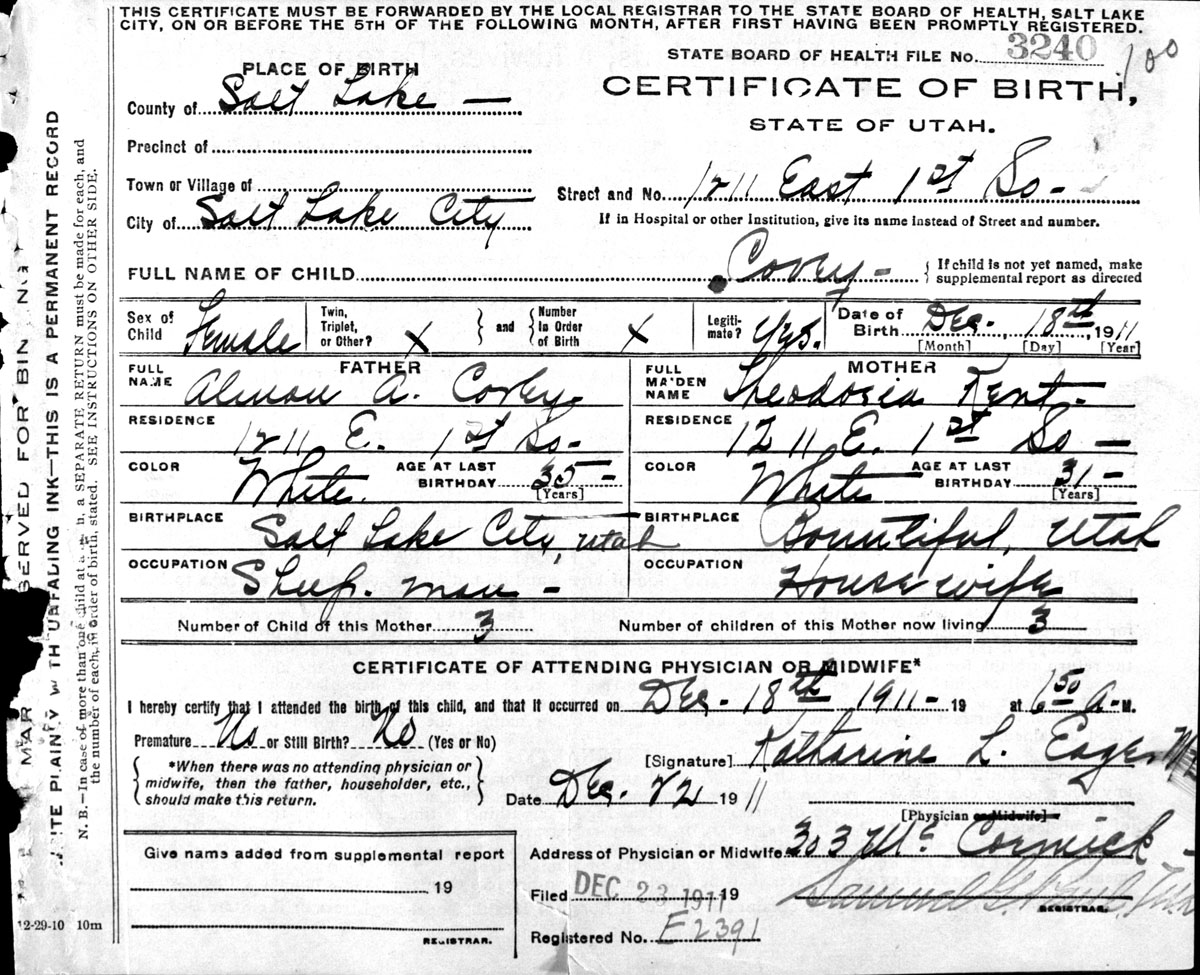 THIS CERTIFICATE MUST BE FORWARDED BY THE LOCAL REGISTRAR TO THE STATE BOARD OF HEALTH, SALT LAKE
CITY, ON OR BEFORE THE 5TH OF THE FOLLOWING MONTH, AFTER FIRST HAVING BEEN PROMPTLY REGISTERED.
STATE BOARD OF HEALTH FILE No. 3240 100
PLACE OF BIRTH
CERTIFICATE OF BIRTH,
County of Salt Lake —
STATE OF UTAH.
Precinct of
Town or Village of
Street and No. 1211 East 1st So -
City of Salt Lake City
If in Hospital or other Institution, give its name instead of Street and number.
FULL NAME OF CHILD Covey - { If child is not yet named, make
supplemental report as directed
Sex of Child Female
Twin, Triplet, or Other? X } and { Number In Order of Birth X
Legiti-mate? Yes.
Date of Birth Dec. 18th 1911
[Month] [Day] [Year]
FATHER
FULL NAME Almon A. Covey -
RESIDENCE 1211 E. 1st So -
COLOR White. AGE AT LAST BIRTHDAY 35 - [Years]
BIRTHPLACE Salt Lake City, Utah
OCCUPATION Sheep. man -
MOTHER
FULL MAIDEN NAME Theodosia Kent -
RESIDENCE 1211 E. 1st So —
COLOR White AGE AT LAST BIRTHDAY 31 - [Years]
BIRTHPLACE Bountiful, Utah
OCCUPATION House wife
Number of Child of this Mother 3 Number of children of this Mother now living 3
CERTIFICATE OF ATTENDING PHYSICIAN OR MIDWIFE*
I hereby certify that I attended the birth of this child, and that it occurred on Dec - 18th 1911 - 19 at 6 50 A - M.
Premature No or Still Birth? No (Yes or No)
[Signature] Katharine L. Eager
{ *When there was no attending physician or
midwife, then the father, householder, etc.,
should make this return. }
Date Dec. 22 1911
[Physician or Midwife]
Address of Physician or Midwife 303 Mc Cornick -
Give name added from supplemental report
19
REGISTRAR.
Filed DEC 23 1911 19
Samuel G. Paul
REGISTRAR.
Registered No. E2391
12-29-10 10m
MAR
SERVED FOR BIN
PLAINLY WITH UNFADING INK—THIS IS A PERMANENT RECORD
N. B.—In case of more than one child at a a SEPARATE RETURN must be made for each, and
the number of each, in order of birth, stated. SEE INSTRUCTIONS ON OTHER SIDE.